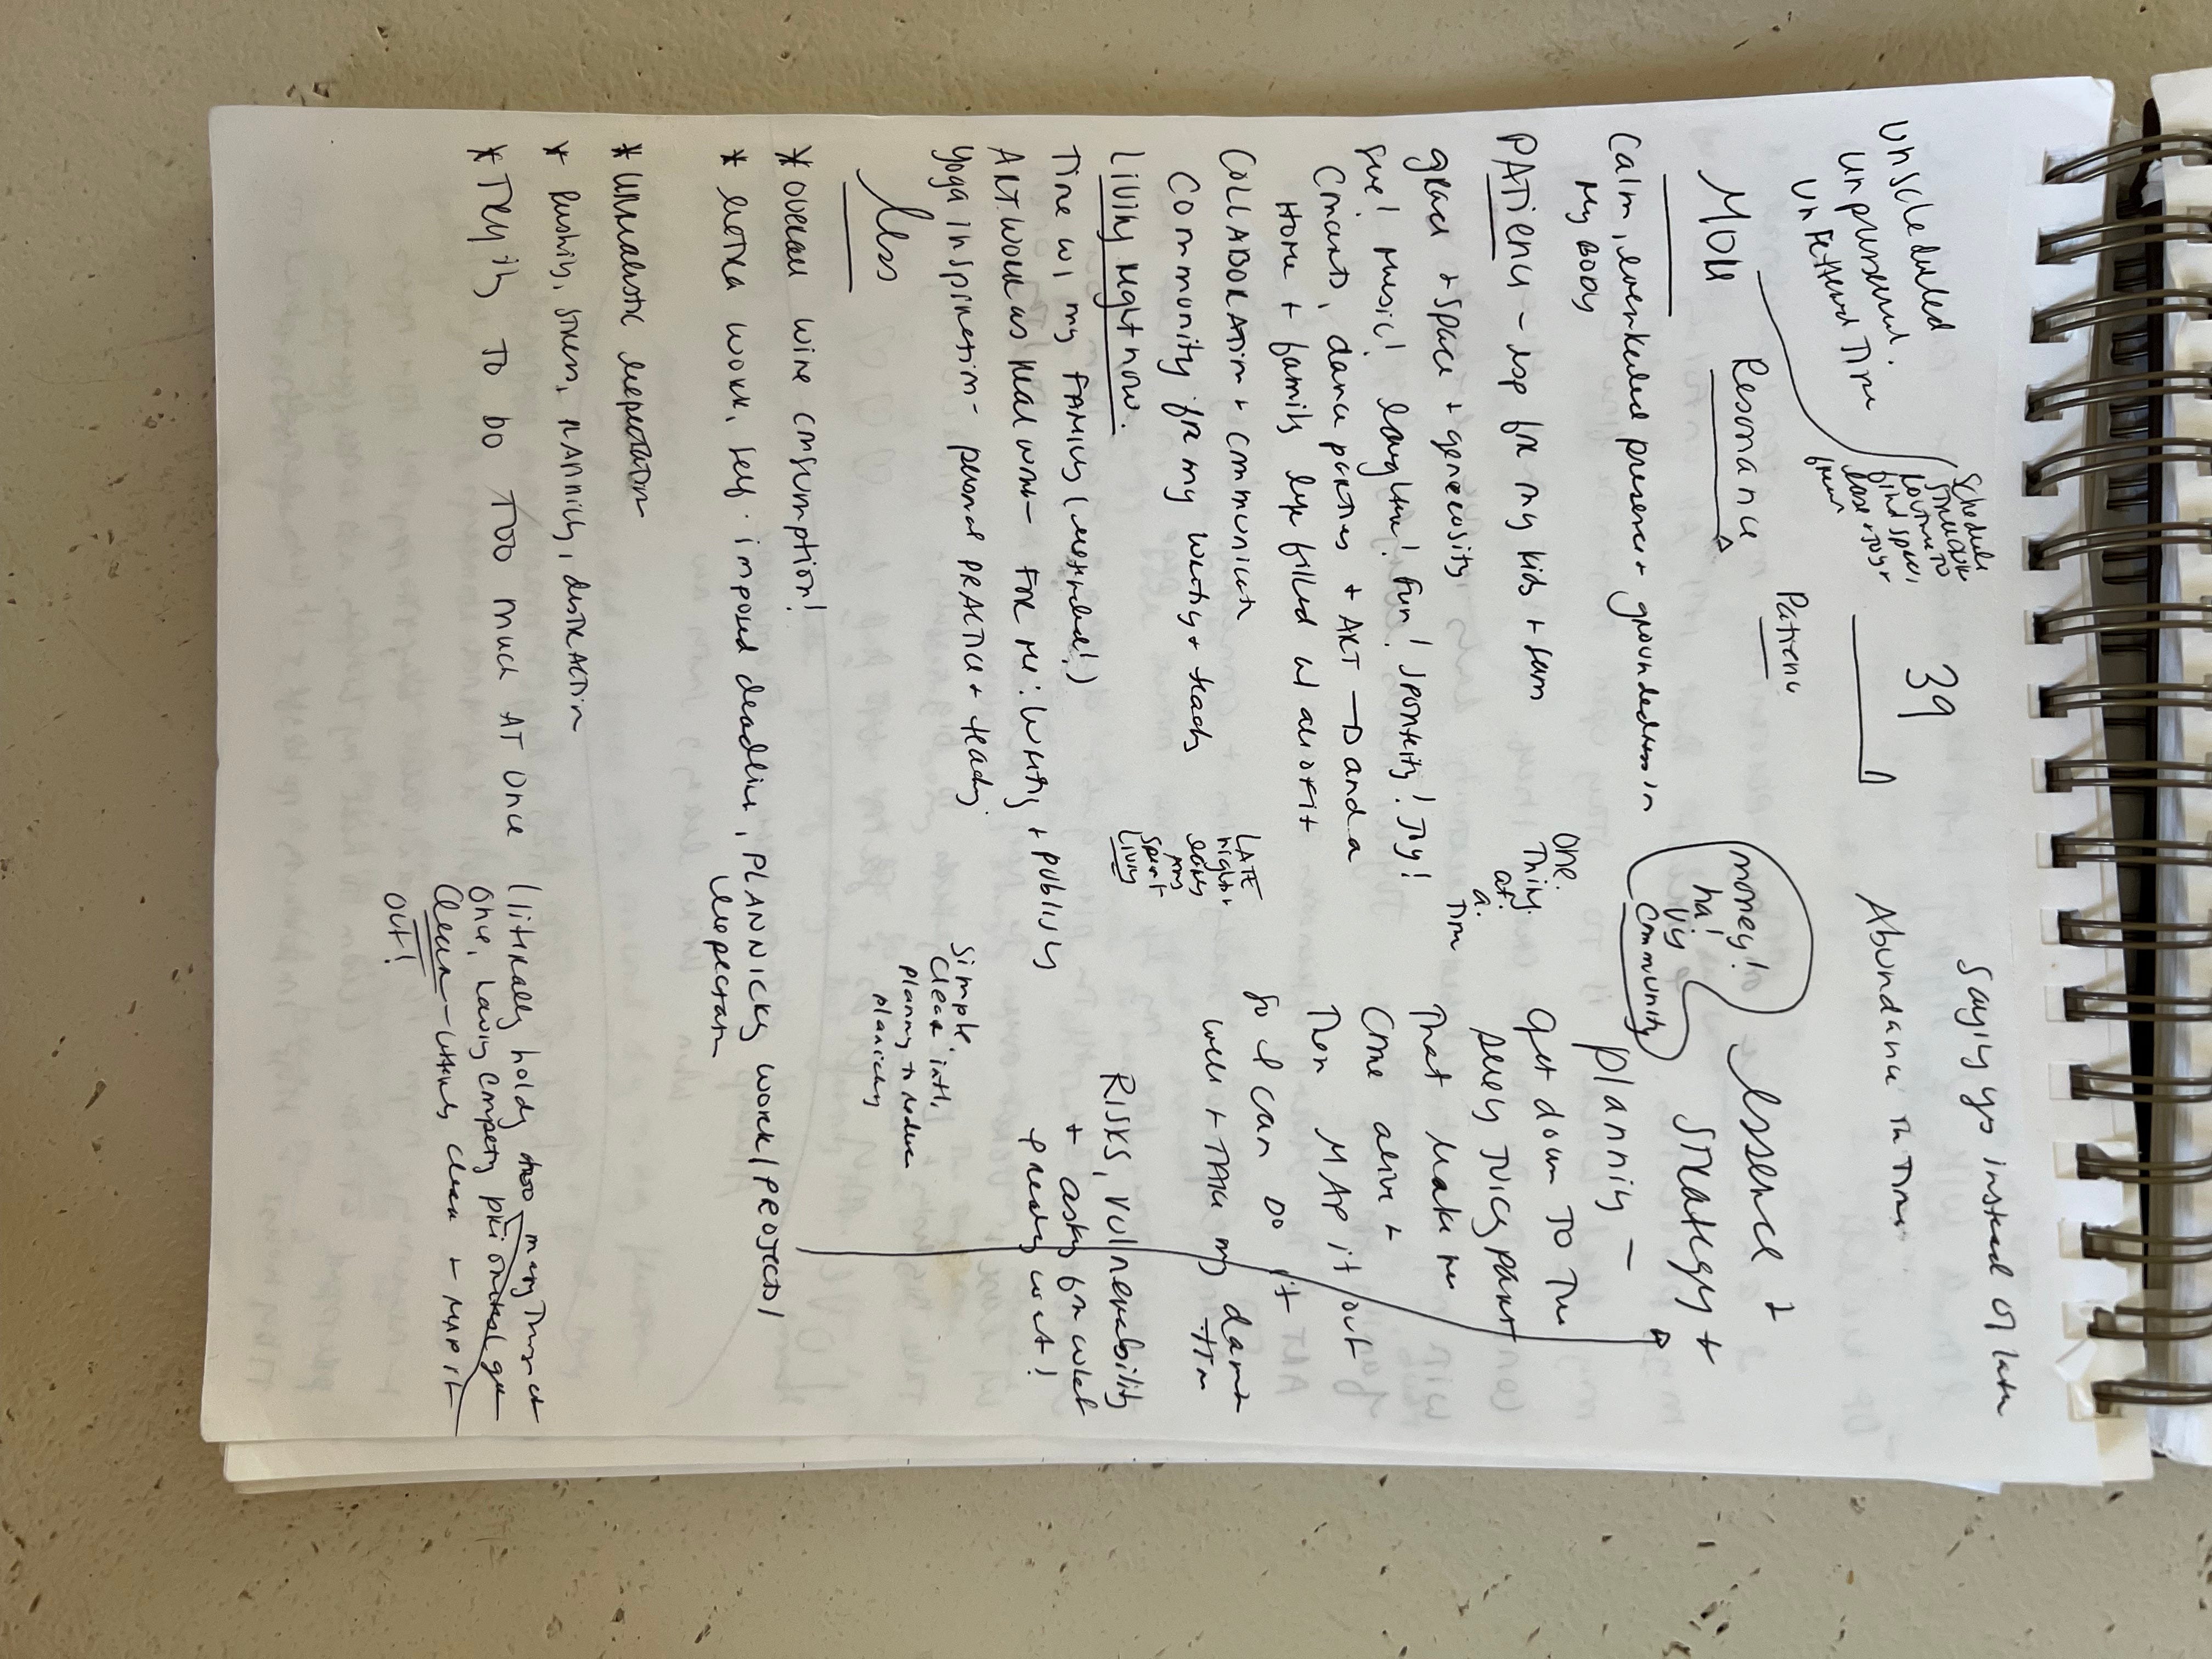 Saying yes instead of later
Unscheduled
unpressured.
unfettered Time
Schedule
structure
routine to
find space,
ease + joy +
39
Abundance in Time
More
Resonance
Patience
money!
ha!
via
community
Essence
Strategy +
planning –
Get down to the
juicy part
That makes me
come alive +
Then MAP it out
So I can do it
well + take my damn
time
Calm, even keeled presence + groundedness in
My BODY
PATIENCE – esp for my kids + fam
grace + space + generosity
live! music! laughter! Fun! Joy!
dance parties + ART → and a
Home + family life filled w/
COLLABORATION + communication
Community for my writing + teaching
Living right now.
Time w/ my FAMILY (extended!)
ARTWORK as REAL WORK – FOR ME: Writing + publishing
Yoga inspiration – personal PRACTICE + teaching
One.
Thing.
at.
a.
Time
LATE
nights +
early
ams
spent
Living
RISKS, vulnerability
+ asking for what
I really want!
Simple.
Clear intl,
planning to reduce
planicking
Less
* OVERALL wine consumption!
* EXTRA WORK, self-imposed deadlines, PLANNICKY WORK/PROJECTS/
expectations
* UNrealistic expectations
* Rushing, stress, PANNICKY, DISTRACTION
* Trying to do TOO much AT Once
(literally holding too many Things at
once, having competing priorities) get
Clear – getting clear + MAP it
out!